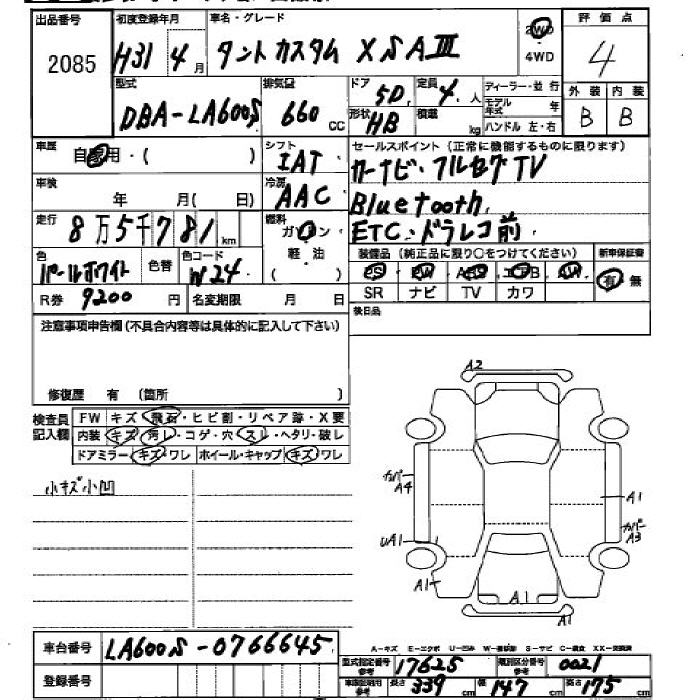 出品番号 初度登録年月 車名・グレード 評価点
2085 H31 4月 タントカスタム XSA III 2WD 4WD 4
型式 排気量 ドア 定員 ディーラー・並行 外装 内装
DBA-LA600S 660 CC 5D 4人 モデル年式 年 B B
形状 HB 積載 kg ハンドル 左・右
車歴 自家用・( ) シフト IAT セールスポイント (正常に機能するものに限ります)
カーナビ・フルセグTV
車検 年 月( 日) 冷房 AAC Bluetooth.
走行 8万5千781km 燃料 ガソリン ETC・ドラレコ前
軽・油 ( )
色 パールホワイト 色替 色コード W24 装備品 (純正品に限り○をつけてください) 新車保証書
PS PW ABS エアB AW 有 無
SR ナビ TV カワ
R券 9200円 名変期限 月 日 後日品
注意事項申告欄(不具合内容等は具体的に記入して下さい)
修復歴 有 (箇所 )
検査員記入欄 FW キズ・飛石・ヒビ割・リペア跡・X要
内装 キズ・汚レ・コゲ・穴・スレ・ヘタリ・破レ
ドアミラー キズ・ワレ ホイール・キャップ キズ・ワレ
小キズ小凹
A2
カバー A4
A1
カバー A3
UA1
A1
A1
A1
A-キズ E-エクボ U-凹み W-補修跡 S-サビ C-腐食 XX-交換済
車台番号 LA600S-0766645
型式指定番号 参考 17625 類別区分番号 参考 0021
登録番号
車検証記載 参考 長さ 339cm 幅 147cm 高さ 175cm